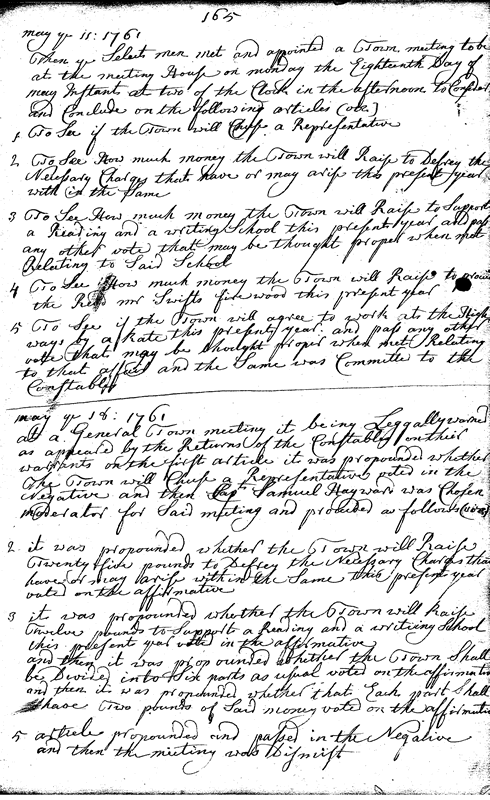 165
may ye 11: 1761
Then ye Select men met and appointed a Town meeting to be
at the meeting House on monday the Eighteenth Day of
may Instant at two of the Clock in the afternoon to Consider
and Conclude on the following articles (viz.)
1 To See if the Town will Chuse a Representative
2 To See How much money the Town will Raise to Defrey the
Necessary Charges that have or may arise this present year
with in the Same
3 To See How much money the Town will Raise to Support
a Reading and a writing School this present year and pass
any other vote that may be thought proper when met
Relating to Said School
4 To See How much money the Town will Raise to
the Revd mr Swifts fire wood this present year
5 To See if the Town will agree to work at the High
ways by a Rate this present year. and pass any other
vote that may be thought proper when met Relating
to that affair and the Same was Committed to the
Constables
may ye 18: 1761
at a General Town meeting it being Leggally warned
as appeared by the Returns of the Constables on their
warrants on the first article it was propounded whether
the Town will Chuse a Representative voted in the
Negative and then Samuel Hayward was Chosen
moderator for Said meeting and proceded as follows (viz)
2 it was propounded whether the Town will Raise
Twenty five pounds to Defrey the Necessary Charges that
have or may arise within the Same this present year
voted on the affirmative
3 it was propounded whether the Town will Raise
Twelve pounds to Support a Reading and a writing School
this present year vote in the affirmative
and then it was propounded whether the Town Shall
be Divided into Six parts as usual voted on the affirmative
and then it was propounded whether that Each part Shall
have Two pounds of Said money voted on the affirmative
5 article propounded and passed in the Negative
and then the meeting was Dismist